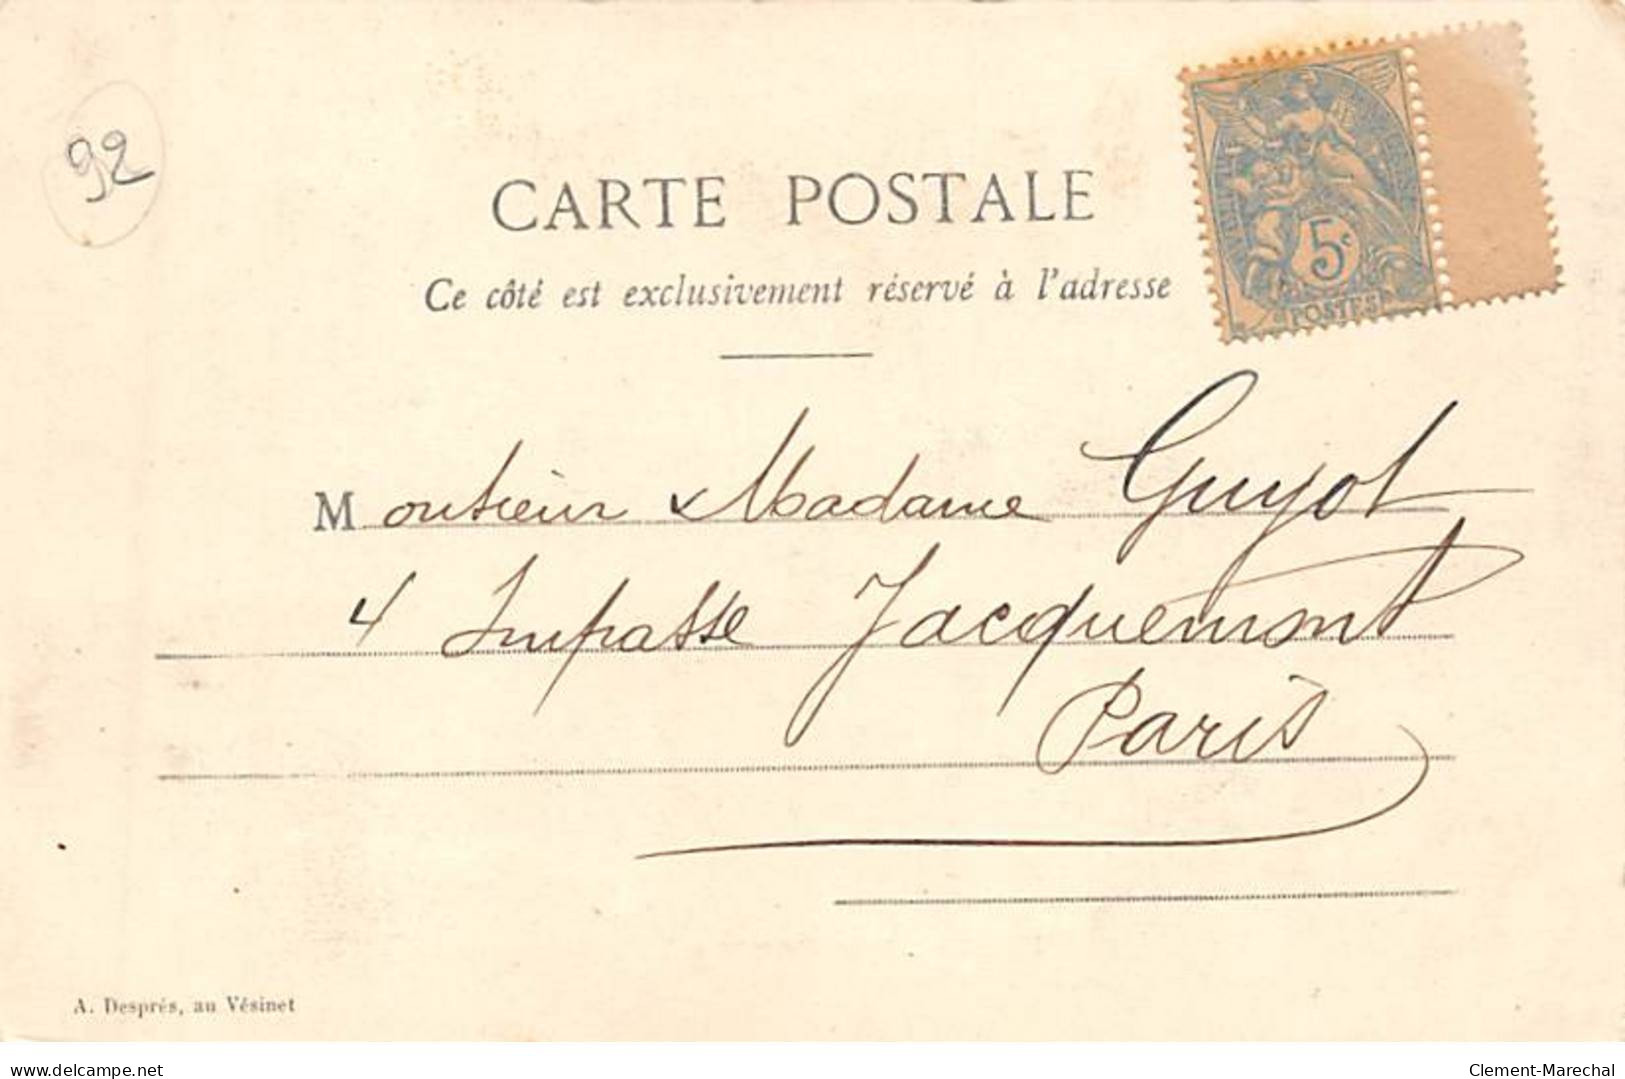 92
CARTE POSTALE
Ce côté est exclusivement réservé à l'adresse
5c
POSTES
Monsieur & Madame Guyot
4 Impasse Jacquemont
Paris
A. Després, au Vésinet
www.delcampe.net
Clement-Marechal